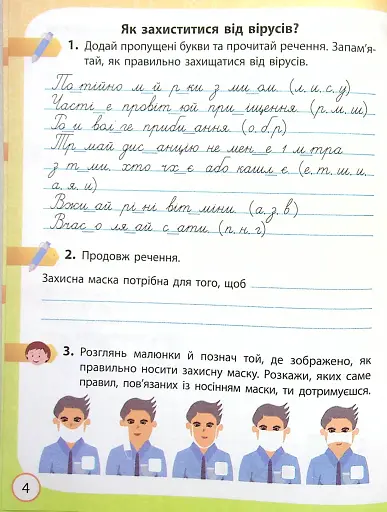 Як захиститися від вірусів?
1. Додай пропущені букви та прочитай речення. Запам'я-
тай, як правильно захищатися від вірусів.
По_тійно м_й р_ки з ми_ом. (л, и, с, у)
Часті_е провіт_юй при_іщення. (р, м, ш)
Ро_и волі_ге приби_ання. (о, б, р)
Тр_май дис_анцію не мен_е 1 м_тра
з т_ми, хто чх_є або кашл_є. (е, т, ш, и,
а, я, и)
Вжи_ай рі_ні віт_міни. (а, з, в)
Вчас_о ля_ай с_ати. (п, н, г)
2. Продовж речення.
Захисна маска потрібна для того, щоб
3. Розглянь малюнки й познач той, де зображено, як
правильно носити захисну маску. Розкажи, яких саме
правил, пов'язаних із носінням маски, ти дотримуєшся.
4